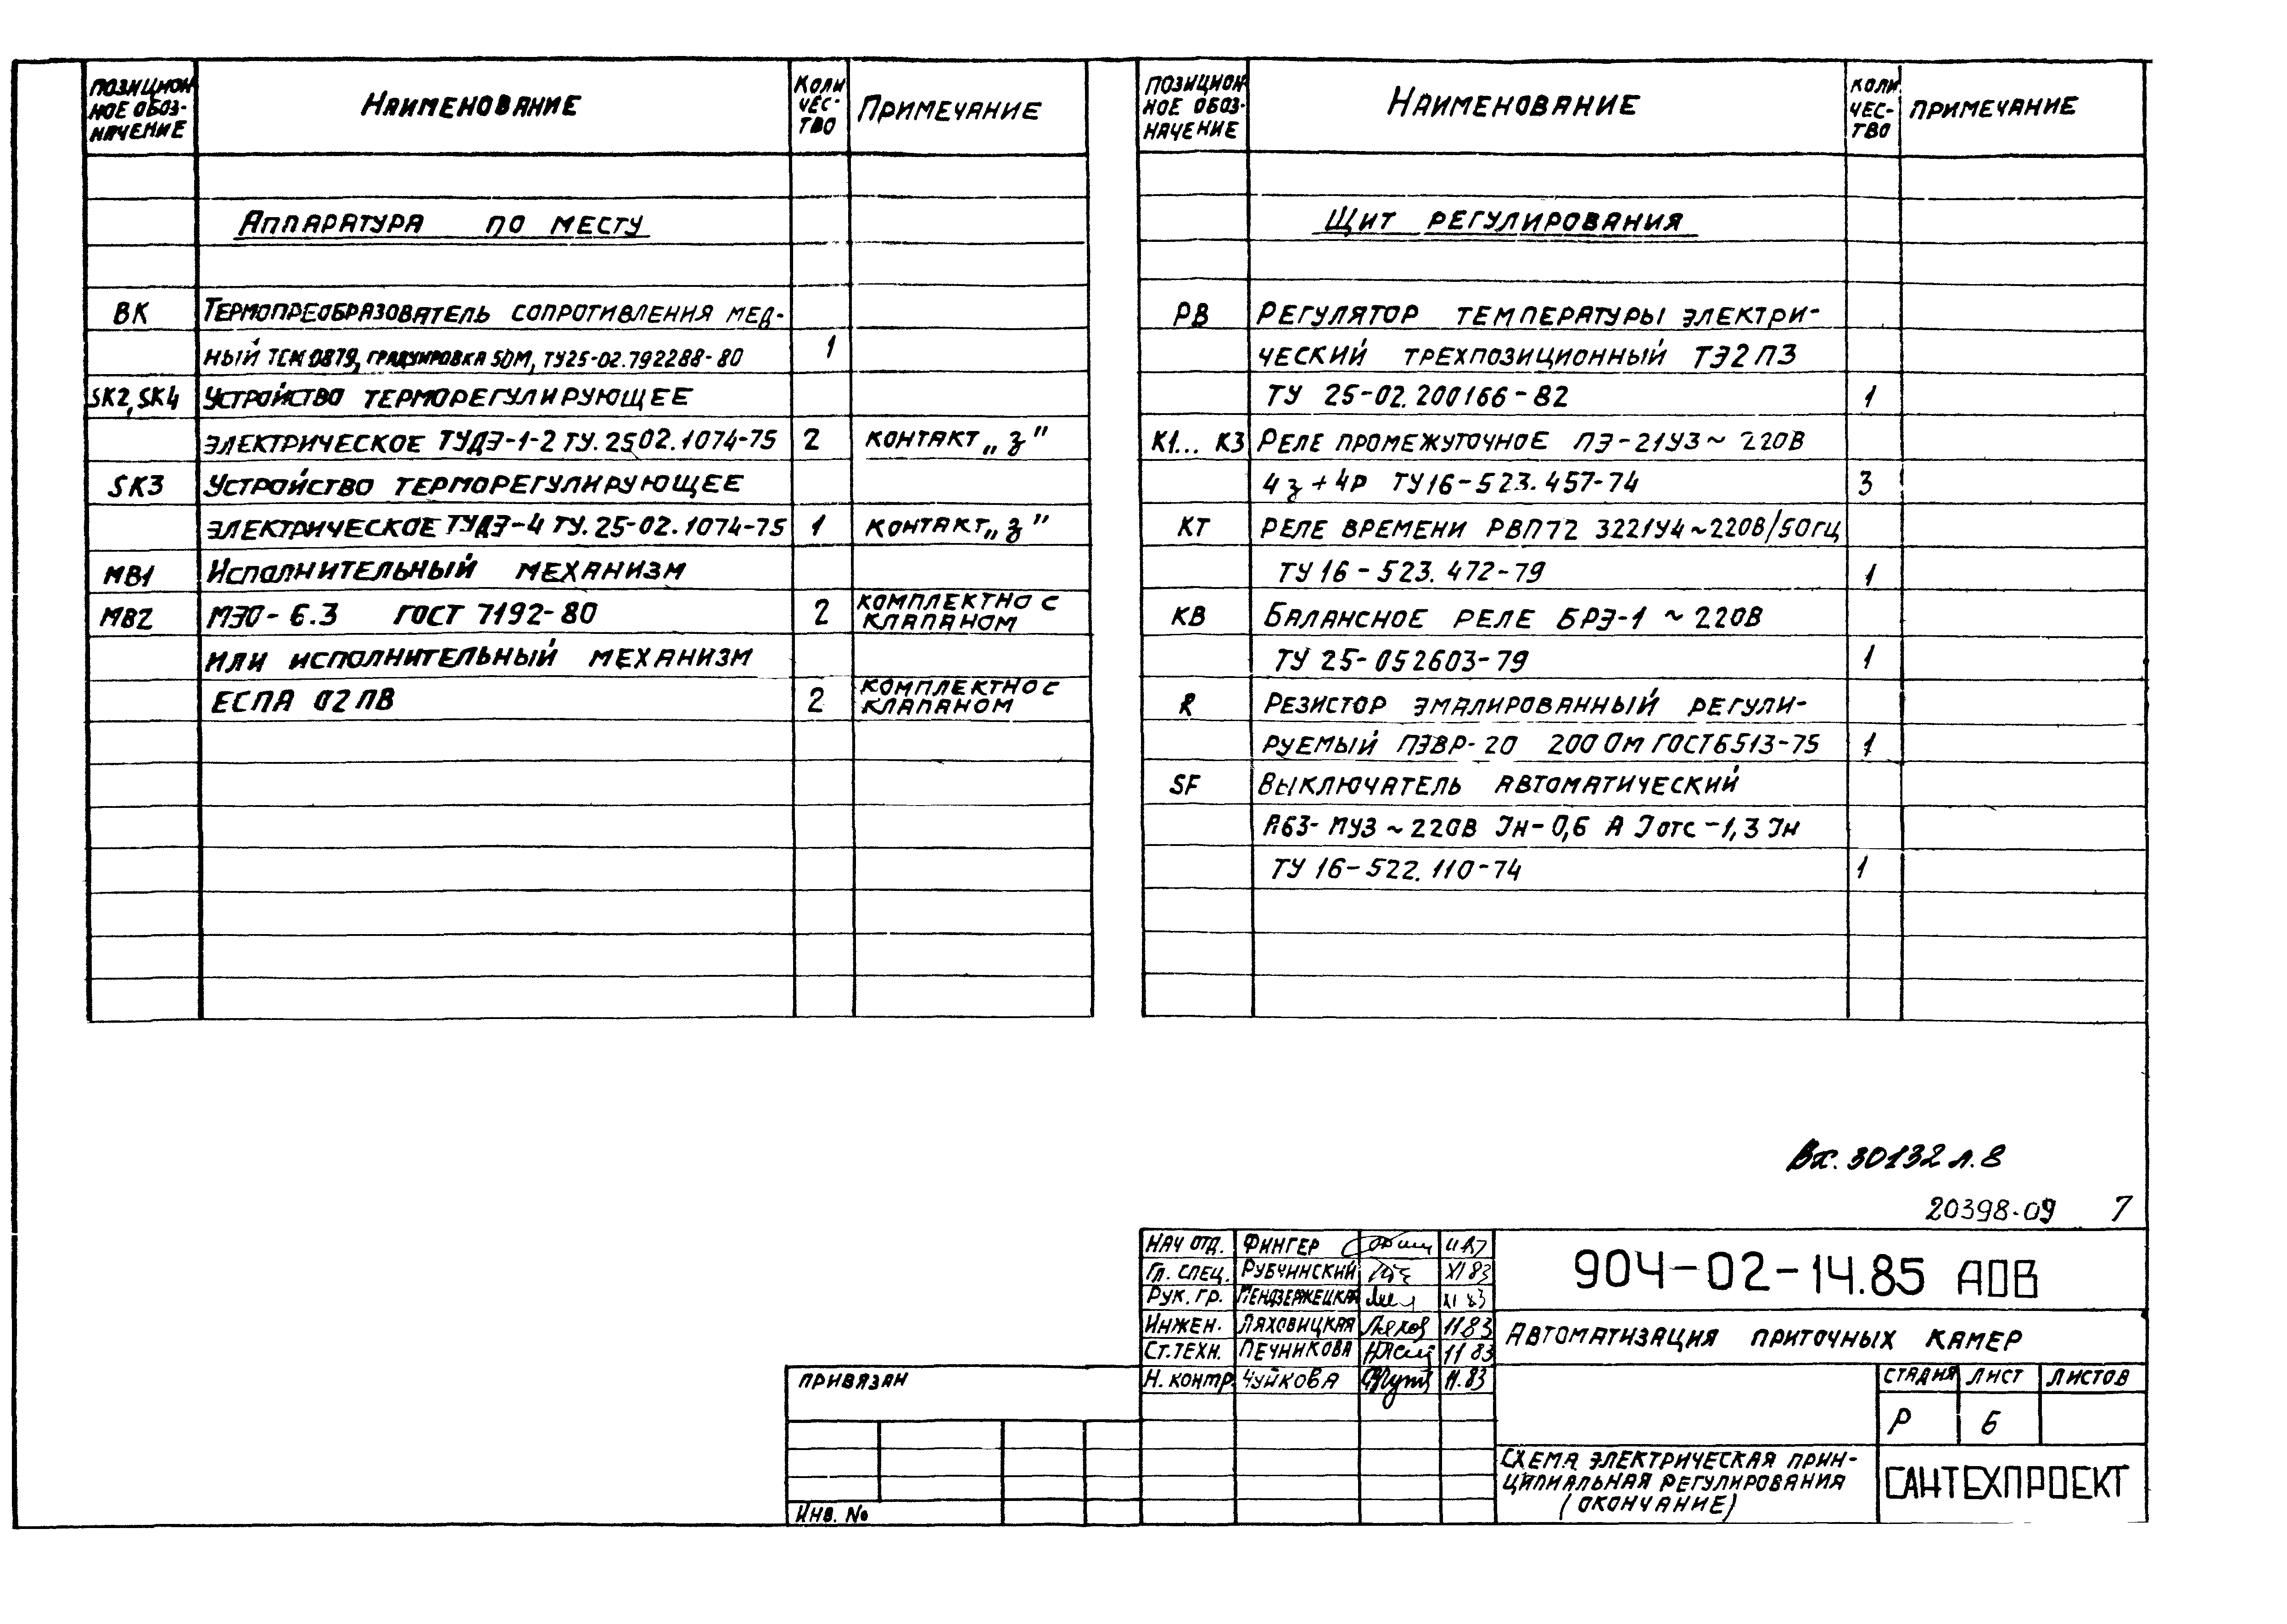 ПОЗИЦИОН
НОЕ ОБОЗ-
НАЧЕНИЕ
НАИМЕНОВАНИЕ
КОЛИ
ЧЕС-
ТВО
ПРИМЕЧАНИЕ
АППАРАТУРА ПО МЕСТУ
ВК ТЕРМОПРЕОБРАЗОВАТЕЛЬ СОПРОТИВЛЕНИЯ МЕД-
НЫЙ ТСМ 0879, ГРАДУИРОВКА 50М, ТУ25-02.792288-80 1
SK2, SK4 УСТРОЙСТВО ТЕРМОРЕГУЛИРУЮЩЕЕ
ЭЛЕКТРИЧЕСКОЕ ТУДЭ-1-2 ТУ.2502.1074-75 2 КОНТАКТ „з"
SK3 УСТРОЙСТВО ТЕРМОРЕГУЛИРУЮЩЕЕ
ЭЛЕКТРИЧЕСКОЕ ТУДЭ-4 ТУ.25-02.1074-75 1 КОНТАКТ „з"
МВ1 ИСПОЛНИТЕЛЬНЫЙ МЕХАНИЗМ
МВ2 МЭО-6.3 ГОСТ 7192-80 2 КОМПЛЕКТНО С
КЛАПАНОМ
ИЛИ ИСПОЛНИТЕЛЬНЫЙ МЕХАНИЗМ
ЕСПА 02ПВ 2 КОМПЛЕКТНО С
КЛАПАНОМ
ПОЗИЦИОН
НОЕ ОБОЗ-
НАЧЕНИЕ
НАИМЕНОВАНИЕ
КОЛИ
ЧЕС-
ТВО
ПРИМЕЧАНИЕ
ЩИТ РЕГУЛИРОВАНИЯ
РВ РЕГУЛЯТОР ТЕМПЕРАТУРЫ ЭЛЕКТРИ-
ЧЕСКИЙ ТРЕХПОЗИЦИОННЫЙ ТЭ2П3
ТУ 25-02.200166-82 1
К1... К3 РЕЛЕ ПРОМЕЖУТОЧНОЕ ПЭ-21У3~ 220В
4з+4Р ТУ16-523.457-74 3
КТ РЕЛЕ ВРЕМЕНИ РВП72 3221У4~220В/50ГЦ
ТУ16-523.472-79 1
КВ БАЛАНСНОЕ РЕЛЕ БРЭ-1 ~ 220В
ТУ 25-052603-79 1
R РЕЗИСТОР ЭМАЛИРОВАННЫЙ РЕГУЛИ-
РУЕМЫЙ ПЭВР-20 200 Ом ГОСТ6513-75 1
SF ВЫКЛЮЧАТЕЛЬ АВТОМАТИЧЕСКИЙ
А63-МУ3 ~ 220В Iн-0,6 А Iотс-1,3 Iн
ТУ 16-522.110-74 1
Вх. 30132 л.8
20398-09 7
НАЧ ОТД. ФИНГЕР
ГЛ. СПЕЦ. РУБЧИНСКИЙ XI 83
РУК. ГР. ПЕНДЗЕРЖЕЦКАЯ XI 83
ИНЖЕН. ЛЯХОВИЦКАЯ Ляхов 11 83
СТ.ТЕХН. ПЕЧНИКОВА 11 83
Н. КОНТР. ЧУЙКОВА 11.83
904-02-14.85 АОВ
АВТОМАТИЗАЦИЯ ПРИТОЧНЫХ КАМЕР
СТАДИЯ ЛИСТ ЛИСТОВ
Р 6
СХЕМА ЭЛЕКТРИЧЕСКАЯ ПРИН-
ЦИПИАЛЬНАЯ РЕГУЛИРОВАНИЯ
(ОКОНЧАНИЕ)
САНТЕХПРОЕКТ
ПРИВЯЗАН
ИНВ. №